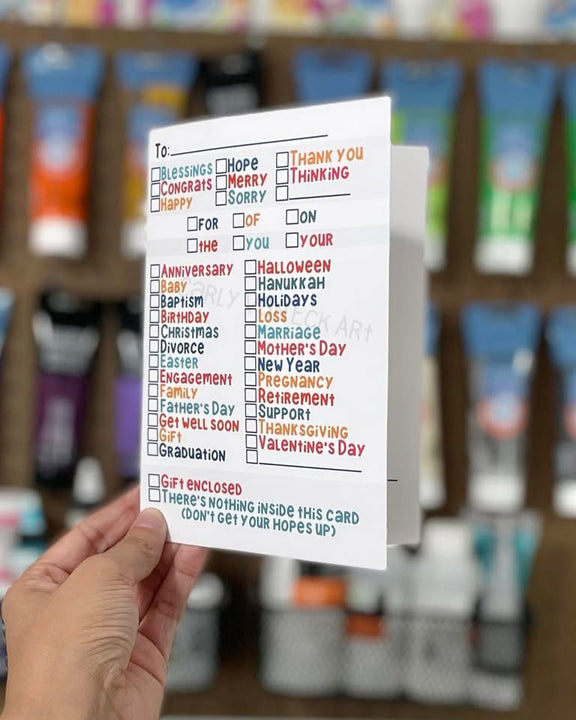 To:
BLESSINGS HOPE THANK YOU
CONGRATS MERRY THINKING
HAPPY SORRY
FOR OF ON
THE YOU YOUR
ANNIVERSARY HALLOWEEN
BABY HANUKKAH
BAPTISM HOLIDAYS
BIRTHDAY LOSS
CHRISTMAS MARRIAGE
DIVORCE MOTHER'S DAY
EASTER NEW YEAR
ENGAGEMENT PREGNANCY
FAMILY RETIREMENT
FATHER'S DAY SUPPORT
GET WELL SOON THANKSGIVING
GIFT VALENTINE'S DAY
GRADUATION
GIFT ENCLOSED
THERE'S NOTHING INSIDE THIS CARD
(DON'T GET YOUR HOPES UP)